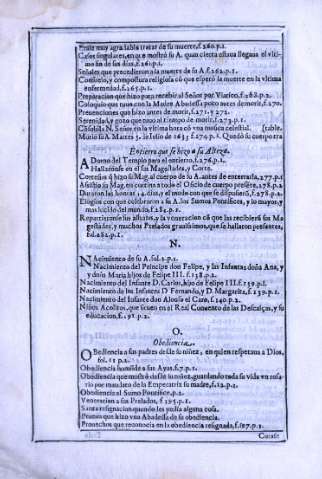 Fuele muy agra habla tratar de su muerte, f.260.p.1.
Casos singulares, en que mostrò su A. quan cierta estaua llegaua el vltimo fin de sus dias, f.261.p.1.
Señales que precedieron a la muerte de su A. f.262.p.1.
Consuelo, y compostura religiosa cõ que esperò la muerte en la vltima
enfermedad, f.265.p.1.
Preparacion que hizo para recibir al Señor por Viatico, f.268.p.2.
Coloquio que tuuo con la Madre Abadesa poco antes de morir, f.270.
Preuenciones que hizo antes de morir, f.271. y 272.
Serenidad, y gozo que tuuo al transito de morir, f.273.p.1.
Cõsolòla N. Señor en la vltima hora cõ vna musica celestial. [table.
Murio su A. Martes 5. de Iulio de 1633. f.274.p.1. Quedò su cuerpo tra
Entierro que se hizo a su Alteza.
ADorno del Templo para el entierro, f.276.p.1.
Hallaronse en èl sus Magestades, y Corte.
Cortesia q̃ hizo su Mag. al cuerpo de su A. antes de enterrarla, 277.p.1
Assistio su Mag. en cortina a todo el Oficio de cuerpo presente, 278.p.1.
Duraron las honras 14. dias, y el modo con que se dispusieron, f.278.p.2.
Elogios con que celebraron a su A. los Sumos Pontifices, y lo mayor, y
mas lucido del mundo, f.284.p.1.
Repartieronse sus alhajas, y la veneracion cõ que las recibierõ sus Magestades, y muchos Prelados grauissimos, que se hallaron presentes,
fol.284.p.1.
N.
NAcimiento de su A. fol.2.p.1.
Nacimiento del Principe don Felipe, y las Infantas doña Ana, y
y doña Maria hijos de Felipe III. f.158.p.2.
Nacimiento del Infante D. Carlos, hijo de Felipe III. f.159.p.1.
Nacimiento de los Infantes D. Fernando, y D. Margarita, f.139.p.1.
Nacimiento del Infante don Alonso el Caro, f.140.p.2.
Niños Acolitos, que siruen en el Real Conuento de las Descalças, y su
educacion, f.191.p.2.
O.
Obediencia.
OBediencia a sus padres desde su niñez, en quien respetaua a Dios,
fol.15.p.1.
Obediencia humilde a sus Ayas, f.7.p.1.
Obediencia que mostrò desde su niñez, guardando toda su vida vn rosario por mandato de la Emperatriz su madre, f.12.p.2.
Obediencia al Sumo Pontifice, p.2.
Veneracion a sus Prelados, f.195.p.1.
Santa resignacion quando les pedia alguna cosa.
Prueua que hizo vna Abadesa de su obediencia.
Prouechos que reconocia en la obediencia resignada, f.87.p.1.
Curase